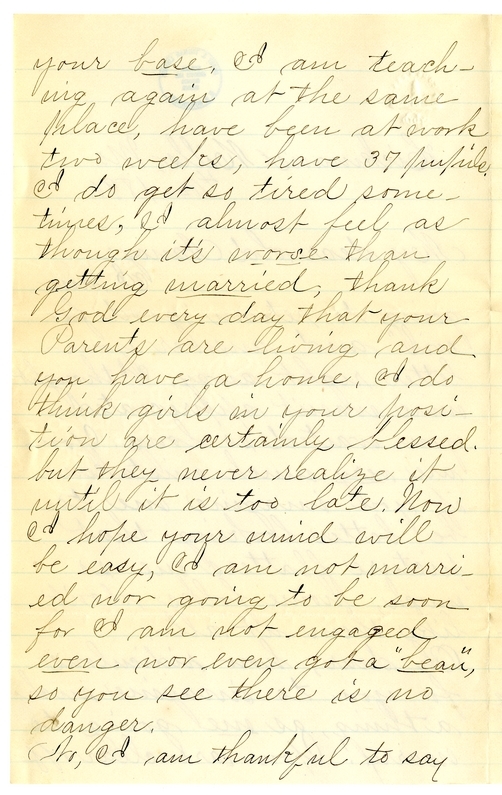 your base. I am teach-
ing again at the same
place, have been at work
two weeks, have 37 pupils,
I do get so tired some-
times, I almost feel as
though it's worse than
getting married, thank
God every day that your
Parents are living and
you have a home. I do
think girls in your posi-
tion are certainly blessed.
but they never realize it
until it is too late. Now
I hope your mind will
be easy, I am not marri-
ed nor going to be soon
for I am not engaged
even nor even got a "beau",
so you see there is no
danger.
No, I am thankful to say